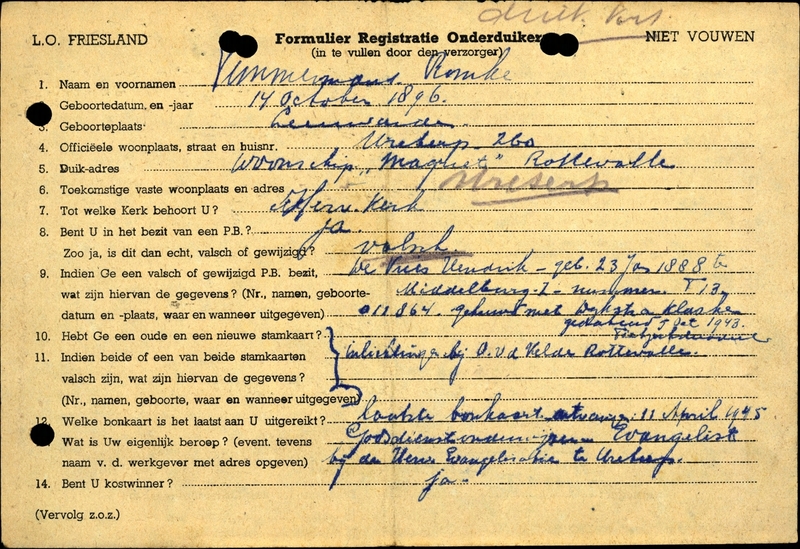 L.O. FRIESLAND
Formulier Registratie Onderduiker
NIET VOUWEN
(in te vullen door den verzorger)
1. Naam en voornamen Timmermans Romke
Geboortedatum, en -jaar 14 October 1896.
3. Geboorteplaats Leeuwarden
4. Officiëele woonplaats, straat en huisnr. Ureterp 260
5. Duik-adres Woonschip "Magneet" Rottevalle
6. Toekomstige vaste woonplaats en adres Ureterp
7. Tot welke Kerk behoort U? Herv. Kerk
8. Bent U in het bezit van een P.B.? ja.
Zoo ja, is dit dan echt, valsch of gewijzigd? valsch.
9. Indien Ge een valsch of gewijzigd P.B. bezit, De Vries Hendrik - geb. 23 Jan 1888 te
wat zijn hiervan de gegevens? (Nr., namen, geboorte- Middelburg - nummer T 13
datum en -plaats, waar en wanneer uitgegeven) 011864. gehuwd met Dijkstra Klaske
5 Oct 1943.
10. Hebt Ge een oude en een nieuwe stamkaart?
11. Indien beide of een van beide stamkaarten Inlichtingen bij O. v d Velde Rottevalle.
valsch zijn, wat zijn hiervan de gegevens?
(Nr., namen, geboorte, waar en wanneer uitgegeven)
12. Welke bonkaart is het laatst aan U uitgereikt? laatste bonkaart ontvangen 11 April 1945
Wat is Uw eigenlijk beroep? (event. tevens Godsdienstonderwijzer Evangelist
naam v. d. werkgever met adres opgeven) bij de Herv. Evangelisatie te Ureterp.
14. Bent U kostwinner? ja.
(Vervolg z.o.z.)